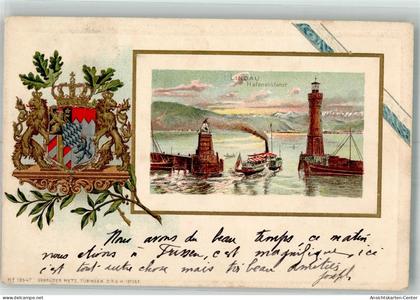 LINDAU
Hafeneinfahrt
Nous avons du beau temps ce matin,
nous étions à Füssen, c'est magnifique, ici
c'est tout autre chose mais très beau amitiés
Joseph
GEBRÜDER METZ, TÜBINGEN. D.R.G.M.